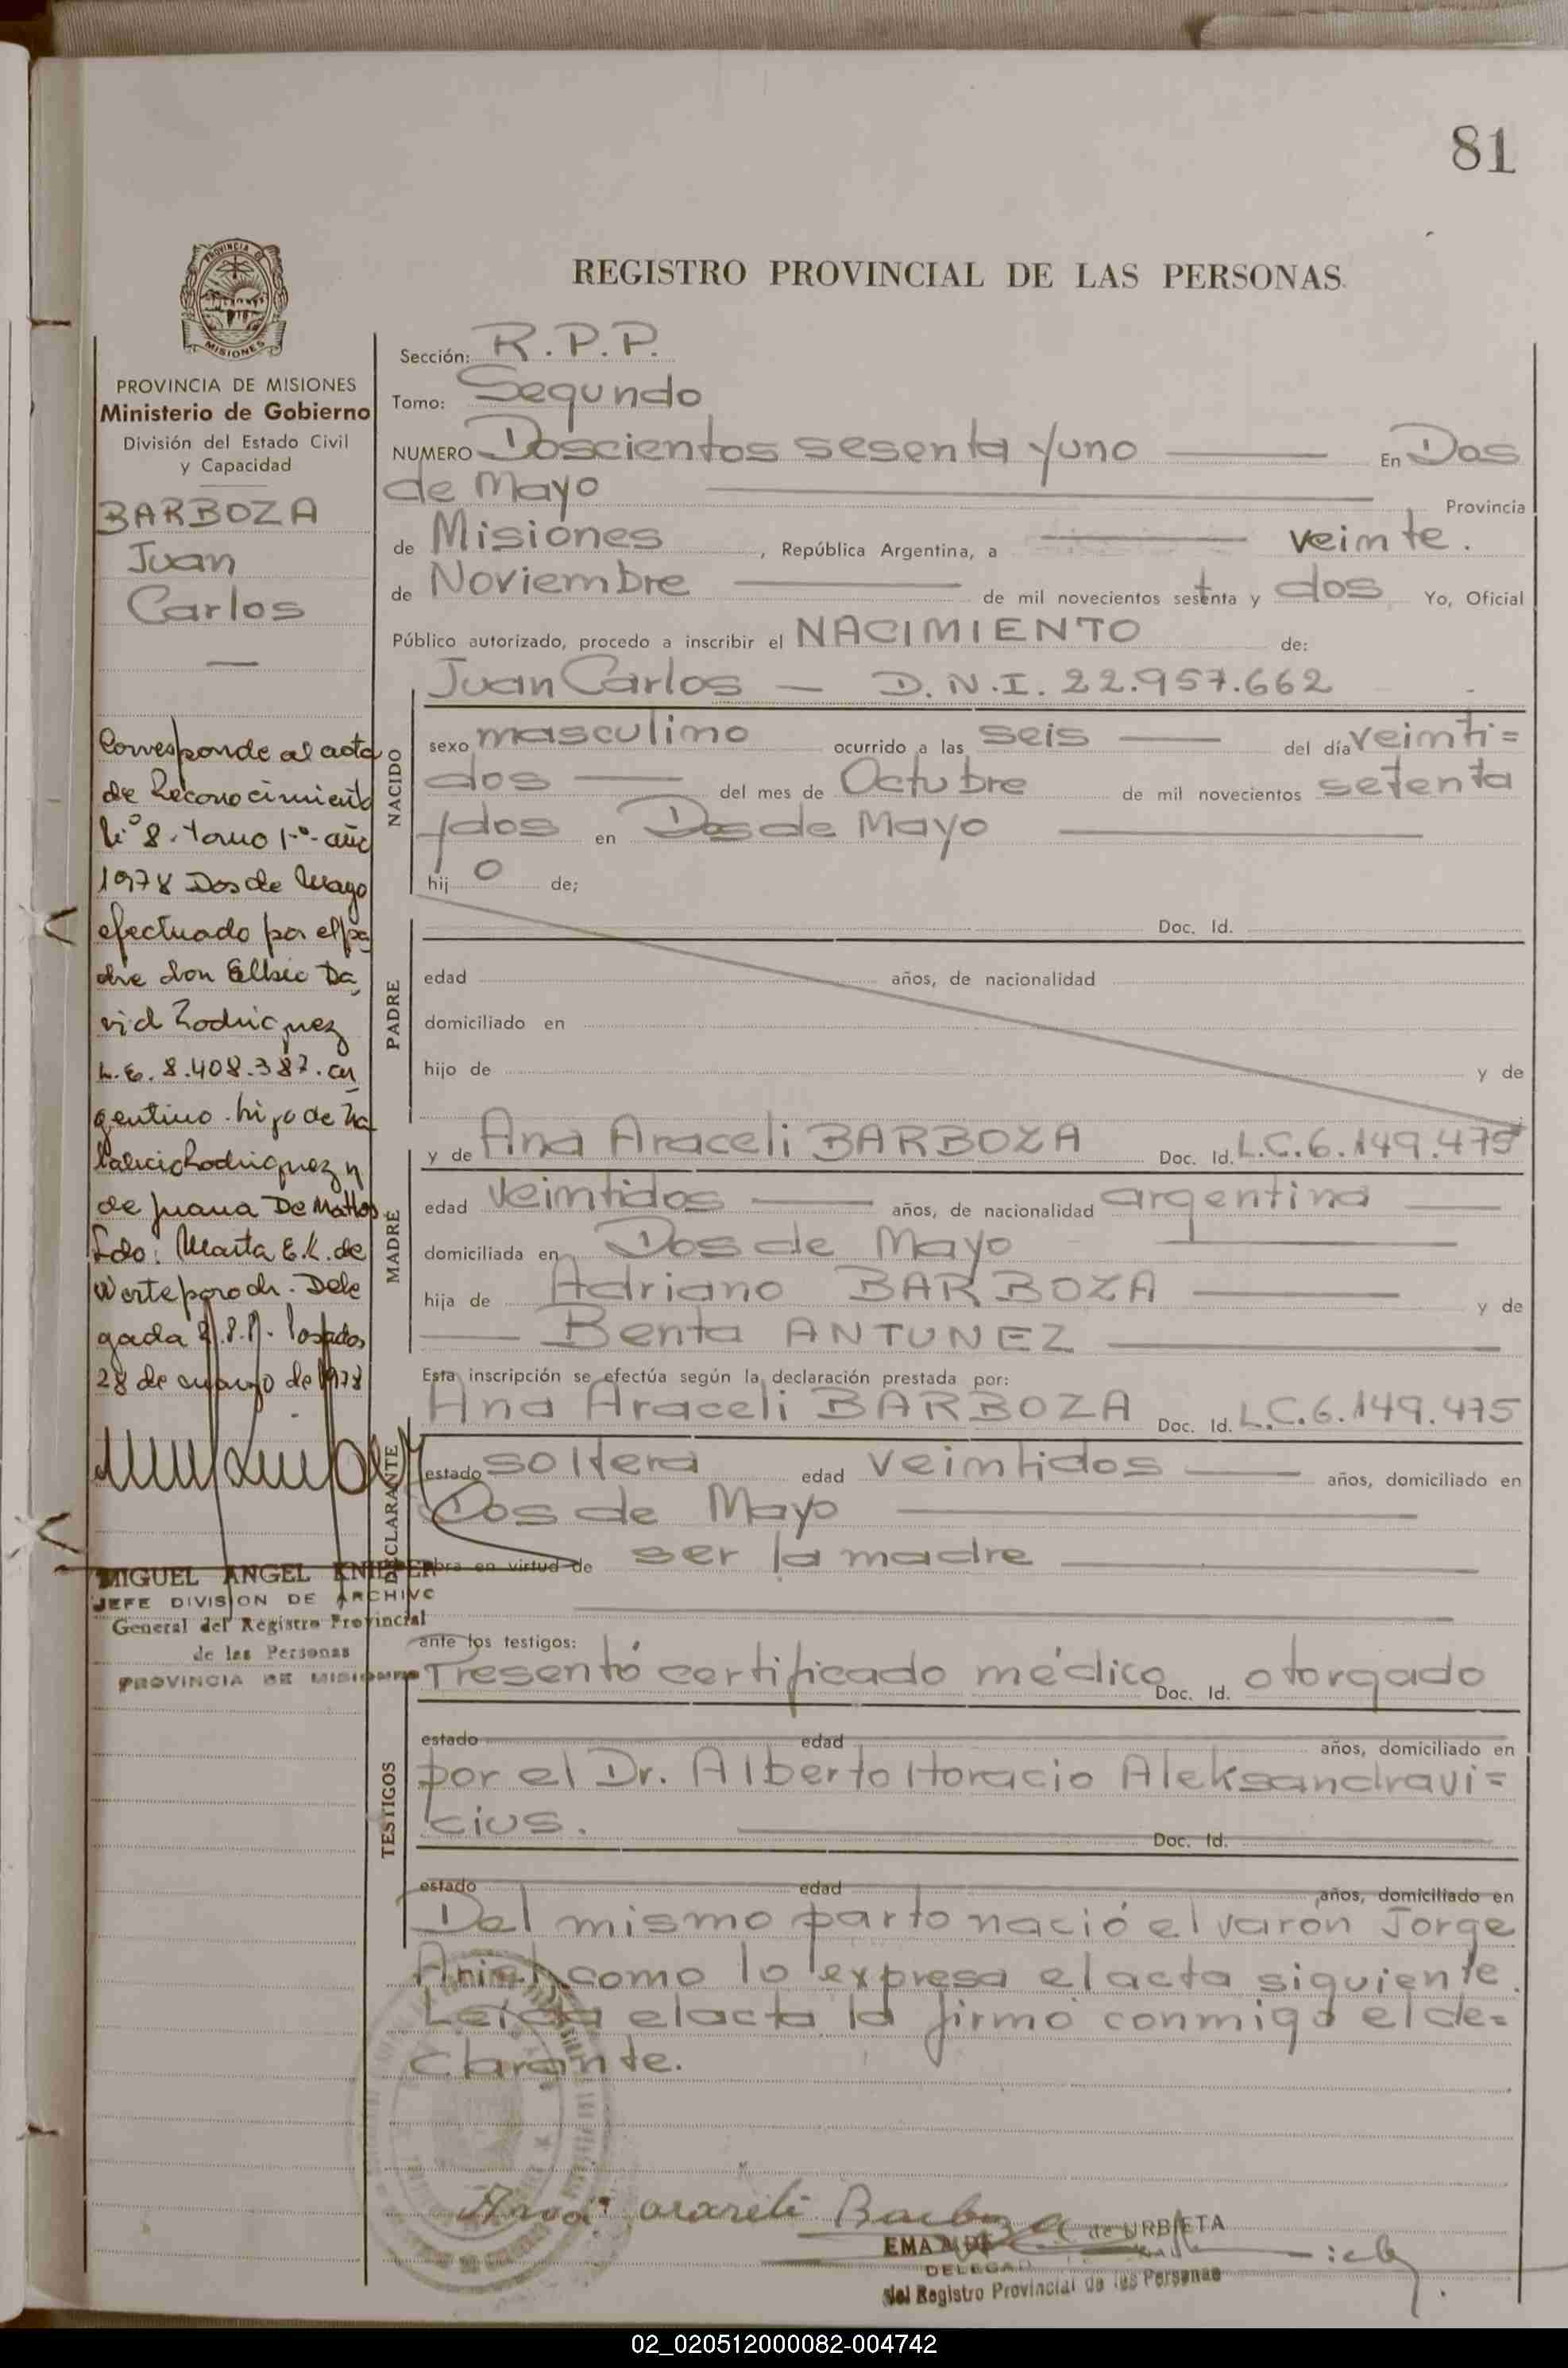 81
REGISTRO PROVINCIAL DE LAS PERSONAS
PROVINCIA DE
MISIONES
PROVINCIA DE MISIONES
Ministerio de Gobierno
División del Estado Civil
y Capacidad
BARBOZA
Juan
Carlos
Corresponde al acta
de Reconocimiento
Nº 8. tomo 1º año
1978 Dos de Mayo
efectuado por el pa
dre don Elbio Da
vid Rodriguez
L.E. 8.408.387. ar
gentino. hijo de
Rodriguez y
de Juana De Mattos
Fdo: Marta E.K. de
Dele
gada R.P.P. Posadas
28 de marzo de 1978
MIGUEL ANGEL
JEFE DIVISION DE ARCHIVO
General del Registro Provincial
de las Personas
PROVINCIA DE MISIONES
Sección: R.P.P.
Tomo: Segundo
NUMERO Doscientos sesenta y uno En Dos
de Mayo Provincia
de Misiones, República Argentina, a veinte.
de Noviembre de mil novecientos setenta y dos Yo, Oficial
Público autorizado, procedo a inscribir el NACIMIENTO de:
Juan Carlos — D.N.I. 22.957.662
NACIDO
sexo masculino ocurrido a las seis del día veinti=
dos del mes de Octubre de mil novecientos setenta
y dos en Dos de Mayo
hij o de;
PADRE
Doc. Id.
edad años, de nacionalidad
domiciliado en
hijo de y de
MADRE
y de Ana Araceli BARBOZA Doc. Id. L.C. 6.149.475
edad veintidos años, de nacionalidad argentina
domiciliada en Dos de Mayo
hija de Adriano BARBOZA y de
Benta ANTUNEZ
Esta inscripción se efectúa según la declaración prestada por:
DECLARANTE
Ana Araceli BARBOZA Doc. Id. L.C. 6.149.475
estado soltera edad veintidos años, domiciliado en
Dos de Mayo
obra en virtud de ser la madre
ante los testigos:
TESTIGOS
Presentó certificado médico Doc. Id. otorgado
estado edad años, domiciliado en
por el Dr. Alberto Horacio Aleksandravi=
cius. Doc. Id.
estado edad años, domiciliado en
Del mismo parto nació el varon Jorge
Ariel, como lo expresa el acta siguiente.
Leída el acta la firmó conmigo el de=
clarante.
Ana Araceli Barboza
EMA de URBIETA
DELEGADA
del Registro Provincial de las Personas
02_020512000082-004742